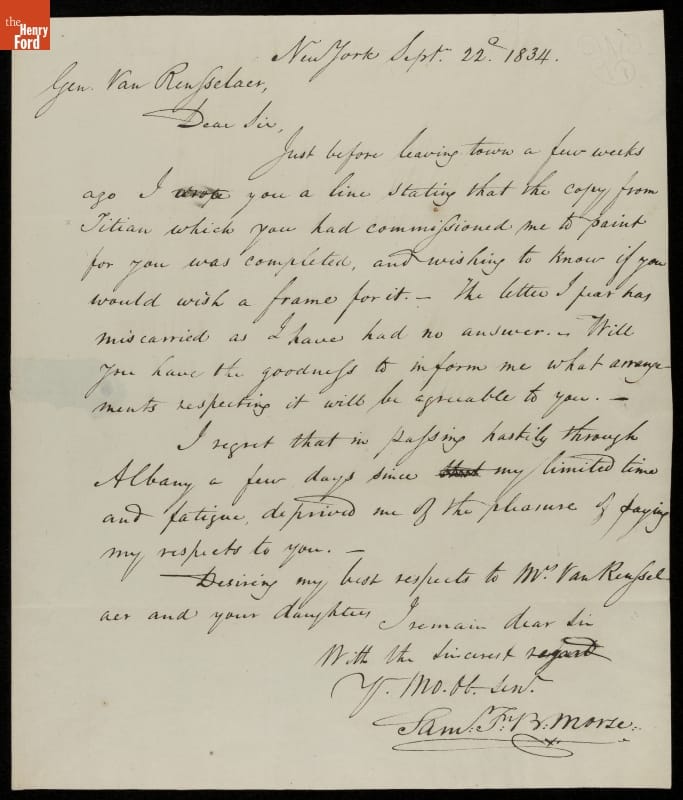 the
Henry
Ford
New York Sept. 22d. 1834.
Gen. Van Rensselaer,
Dear Sir,
Just before leaving town a few weeks
ago I wrote you a line stating that the copy from
Titian which you had commissioned me to paint
for you was completed, and wishing to know if you
would wish a frame for it. – The letter I fear has
miscarried as I have had no answer. – Will
you have the goodness to inform me what arrange-
ments respecting it will be agreeable to you. –
I regret that in passing hastily through
Albany a few days since that my limited time
and fatigue, deprived me of the pleasure of paying
my respects to you. –
Desiring my best respects to Mrs. Van Renssel-
aer and your daughters I remain dear Sir
With the sincerest regard
Yr. Mo. Ob. Servt.
Saml. F. B. Morse.